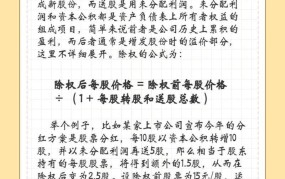 成新股份，而送股是用来分配利润。未分配
利润和资本公积都是资产负债表上所有者权益的
组成项目，简单来说前者是公司历史上累积的
盈利，而后者通常是增发股份时的溢价部分，
这里不详细展开。除权的公式为：
除权后每股价格 = 除权前每股价格
÷（1 + 每股转股和送股总数）
单个例子，比如某家上市公司宣布今年的分
红方案是股票分红，每10股以资本公积转增10
股，并以未分配利润再送5股，那么相当于股东
持有的每股股票，将得到额外的1.5股，从而在
除权后变为2.5股。设除权前股票为15元/股，送